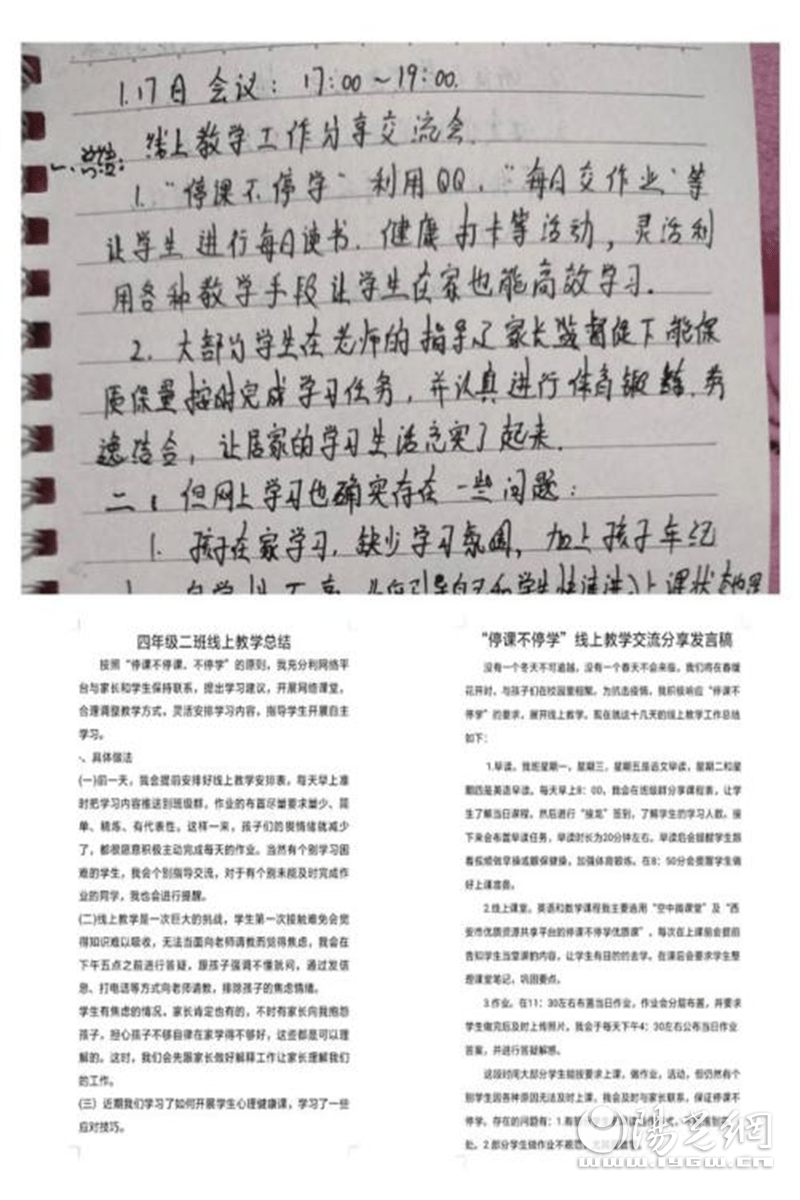 1.17日 会议：17:00～19:00.
线上教学工作分享交流会.
一、总结：
1.“停课不停学”利用QQ、“每日交作业”等
让学生进行每日读书.健康打卡等活动，灵活利
用各种教学手段让学生在家也能高效学习.
2.大部分学生在老师的指导及家长监督促下能保
质保量按时完成学习任务，并认真进行体育锻炼.劳
逸结合，让居家的学习生活充实了起来.
二、但网上学习也确实存在一些问题：
1.孩子在家学习，缺少学习氛围，加上孩子年纪
四年级二班线上教学总结
按照“停课不停课、不停学”的原则，我充分利网络平
台与家长和学生保持联系，提出学习建议，开展网络课堂，
合理调整教学方式，灵活安排学习内容，指导学生开展自主
学习。
、具体做法
(一)前一天，我会提前安排好线上教学安排表，每天早上准
时把学习内容推送到班级群，作业的布置尽量要求量少、简
单、精炼、有代表性。这样一来，孩子们的畏情绪就减少
了，都很愿意积极主动完成每天的作业。当然有个别学习困
难的学生，我会个别指导交流，对于有个别未能及时完成作
业的同学，我也会进行提醒。
(二)线上教学是一次巨大的挑战，学生第一次接触难免会觉
得知识难以吸收，无法当面向老师请教而觉得焦虑，我会在
下午五点之前进行答疑，跟孩子强调不懂就问，通过发信
息、打电话等方式向老师请教，排除孩子的焦虑情绪。
学生有焦虑的情况，家长肯定也有的，不时有家长向我抱怨
孩子，担心孩子不够自律在家学得不够好，这些都是可以理
解的。这时，我们会先跟家长做好解释工作让家长理解我们
的工作。
(三) 近期我们学习了如何开展学生心理健康课，学习了一些
应对技巧。
“停课不停学”线上教学交流分享发言稿
没有一个冬天不可逾越，没有一个春天不会来临。我们将在春暖
花开时，与孩子们在校园里相聚。为抗击疫情，我积极响应“停课不
停学”的要求，展开线上教学。现在就这十几天的线上教学工作总结
如下：
1.早读。我班星期一，星期三，星期五是语文早读，星期二和星
期四是英语早读。每天早上8：00，我会在班级群分享课程表，让学
生了解当日课程。然后进行“接龙”签到，了解学生的学习人数。接
下来会布置早读任务，早读时长为20分钟左右。早读后会提醒学生跟
着视频做早操或眼保健操，加强体育锻炼。在8：50分会提醒学生做
好上课准备。
2.线上课堂。英语和数学课程我主要选用“空中微课堂”及“西
安市优质资源共享平台的停课不停学优质课”，每次在上课前会提前
告知学生当堂课的内容，让学生有目的的去学。在课后会要求学生整
理课堂笔记，巩固要点。
3.作业。在11：30左右布置当日作业，作业会分层布置，并要求
学生做完后及时上传照片。我会于每天下午4：30左右公布当日作业
答案，并进行答疑解惑。
这段时间大部分学生能按要求上课，做作业，活动，但仍然有个
别学生因各种原因无法及时上课，我会及时与家长联系，保证停课不
停学。存在的问题有：1.有
处。2.部分学生做作业不规范，
阳光网
www.iygw.cn